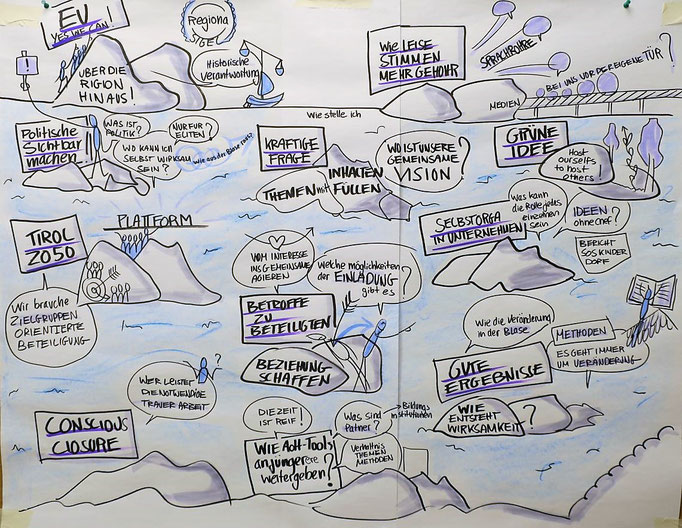 EU
YES WE CAN!
ÜBER DIE
RIGION
HINAUS!
Regiona
Historische
Verantwortung
Wie LEISE
STIMMEN
MEHR GEHÖHR
SPRACHROHRE
BEI UNS VOR DER EIGENE TÜR?
MEDIEN
Wie stelle ich
Politische
Sichtbar
machen!!
WAS IST
POLITIK?
NUR FÜR
ELITEN?
WO KANN ICH
SELBST WIRKSAM
SEIN?
wie aus der Blase
KRÄFTIGE
FRAGE
THEMEN mit INHALTEN
FÜLLEN
WO IST UNSERE
GEMEINSAME
VISION?
GRÜNE
IDEE
Host
ourselfs
to host
others!
TIROL
2050
PLATTFORM
Wir brauche
ZIELGRUPPEN
ORIENTIERTE
BETEILIGUNG
VOM INTERESSE
INS GEMEINSAME
AGIEREN
Welche möglichkeiten
der EINLADUNG
gibt es?
BETROFFE
ZU
BETEILIGTEN
BEZIEHUNG
SCHAFFEN
SELBSTORGA
IN UNTERNEHMEN
Was kann
die Rolle jedes
einzelnen
sein?
IDEEN
ohne chef?
BERICHT
SOS KINDER
DORF
Wie die Veränderung
in der BLASE
METHODEN
ES GEHT IMMER
UM VERÄNDERUNG
GUTE
ERGEBNISSE
WIE
ENTSTEHT
WIRKSAMKEIT?
WER LEISTET
DIE NOTWENDIGE
TRAUERARBEIT
?
CONSCIOUS
CLOSURE
DIE ZEIT
IST REIF!
Was sind
Partner?
Bildungs
institutionen
WIE AoH-Tools
an jüngere
weitergeben?
Verhältnis
THEMEN
METHODEN